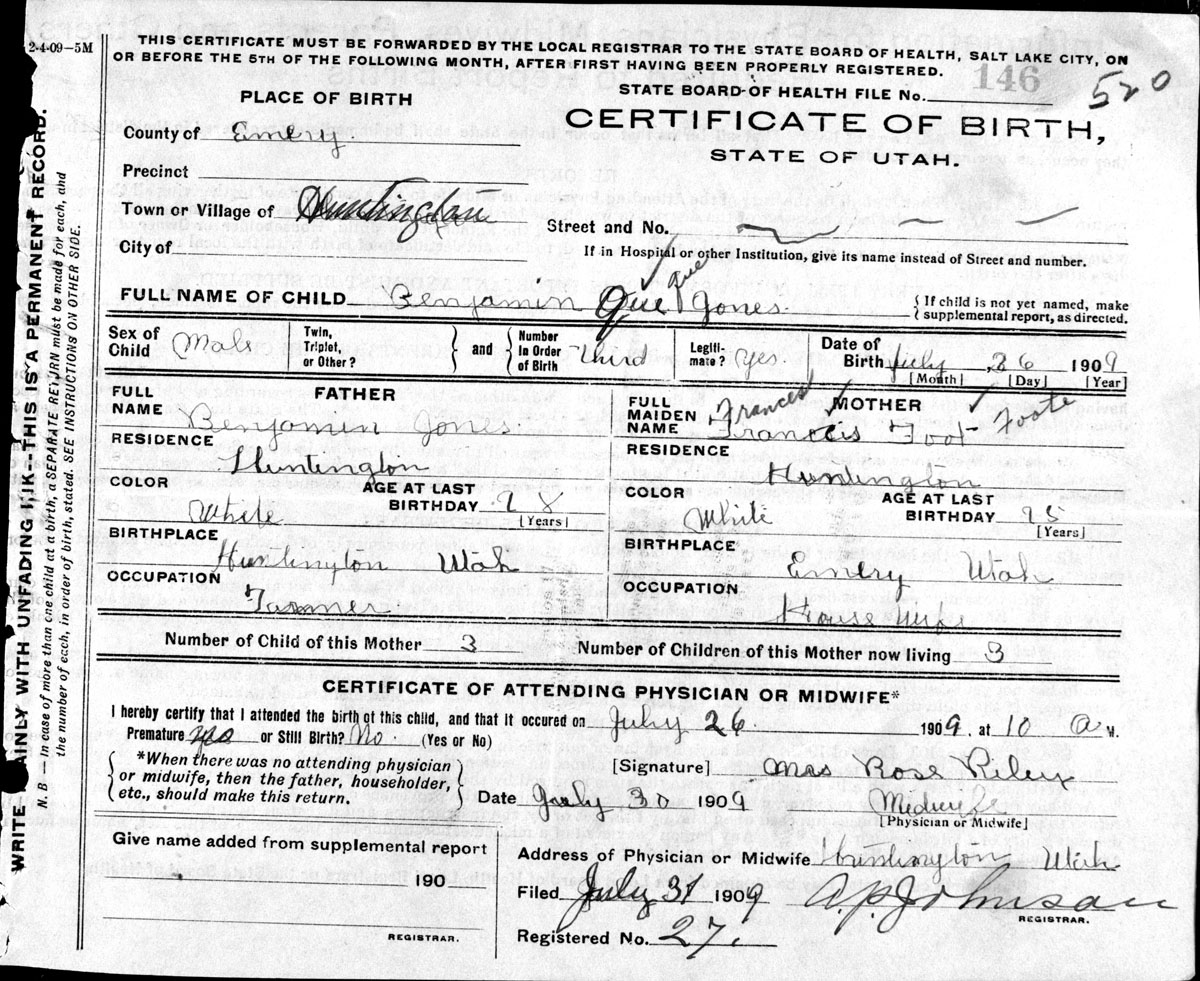 2-4-09-5M
THIS CERTIFICATE MUST BE FORWARDED BY THE LOCAL REGISTRAR TO THE STATE BOARD OF HEALTH, SALT LAKE CITY, ON
OR BEFORE THE 5TH OF THE FOLLOWING MONTH, AFTER FIRST HAVING BEEN PROPERLY REGISTERED.
146
520
STATE BOARD OF HEALTH FILE No.
PLACE OF BIRTH
CERTIFICATE OF BIRTH,
STATE OF UTAH.
County of Emery
Precinct
Town or Village of Huntington
Street and No.
City of
If in Hospital or other Institution, give its name instead of Street and number.
Que
FULL NAME OF CHILD Benjamin Que Jones.
{ If child is not yet named, make
supplemental report, as directed.
Sex of Child Male
Twin, Triplet, or Other?
and
Number in Order of Birth Third
Legiti-mate? Yes
Date of Birth July 26 1909
[Month] [Day] [Year]
FATHER
FULL NAME Benjamin Jones.
RESIDENCE
Huntington
COLOR White
AGE AT LAST BIRTHDAY 28
[Years]
BIRTHPLACE
Huntington Utah
OCCUPATION
Farmer
MOTHER
Frances Foote
FULL MAIDEN NAME Francis Foot
RESIDENCE
Huntington
COLOR White
AGE AT LAST BIRTHDAY 25
[Years]
BIRTHPLACE
Emery Utah
OCCUPATION
House Wife
Number of Child of this Mother 3
Number of Children of this Mother now living 3
CERTIFICATE OF ATTENDING PHYSICIAN OR MIDWIFE*
I hereby certify that I attended the birth of this child, and that it occured on July 26. 1909. at 10 A M.
Premature yes or Still Birth? No. (Yes or No)
*When there was no attending physician
or midwife, then the father, householder,
etc., should make this return.
[Signature] Mrs Rose Riley
Date July 30 1909
Midwife
[Physician or Midwife]
Give name added from supplemental report
190
REGISTRAR.
Address of Physician or Midwife Huntington Utah
Filed July 31 1909
A.P. Johnson
REGISTRAR.
Registered No. 27.
WRITE PLAINLY WITH UNFADING INK--THIS IS A PERMANENT RECORD.
N. B.—In case of more than one child at a birth, a SEPARATE RETURN must be made for each, and
the number of each, in order of birth, stated. SEE INSTRUCTIONS ON OTHER SIDE.